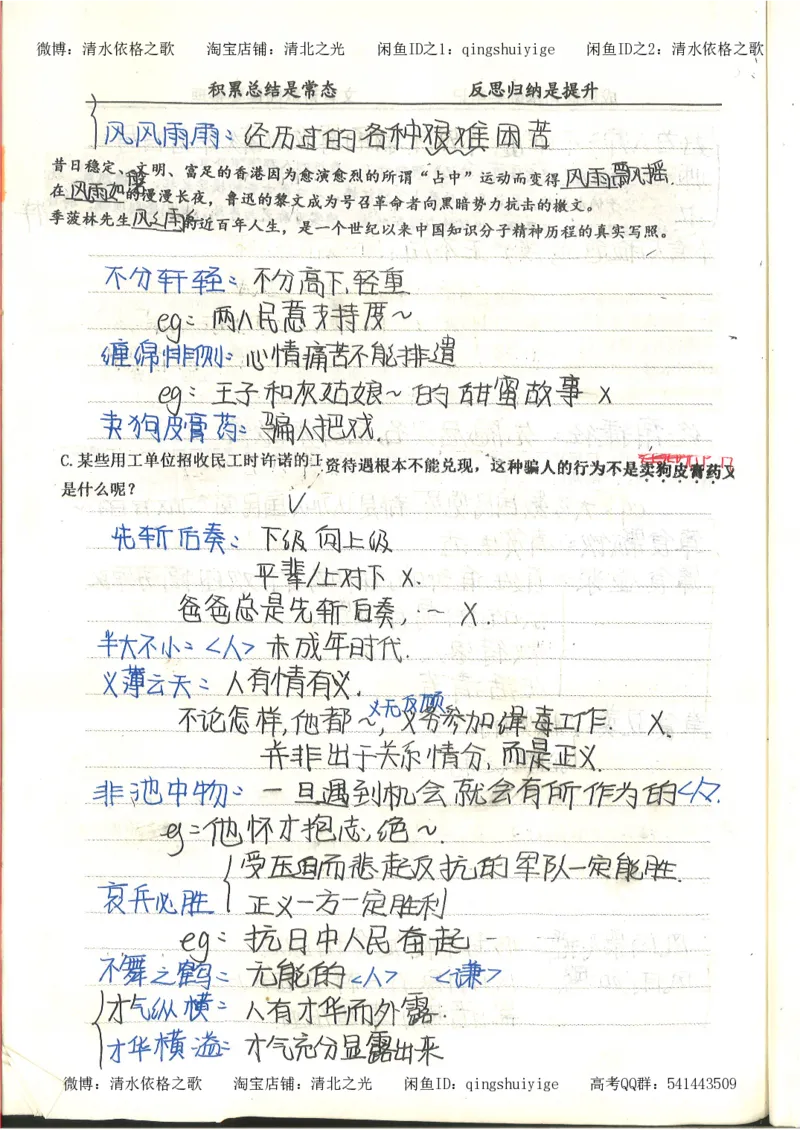 微博：清水依格之歌 淘宝店铺：清北之光 闲鱼ID之1：qingshuiyige 闲鱼ID之2：清水依格之歌
积累总结是常态 反思归纳是提升
风风雨雨：经历过的各种艰难困苦
昔日稳定、文明、富足的香港因为愈演愈烈的所谓“占中”运动而变得风雨飘摇.
在风雨如晦的漫漫长夜，鲁迅的黎文成为号召革命者向黑暗势力抗击的檄文。
季菠林先生风风雨雨的近百年人生，是一个世纪以来中国知识分子精神历程的真实写照。
不分轩轾：不分高下，轻重
eg：两人民意支持度～
缠绵悱恻：心情痛苦不能排遣
eg：王子和灰姑娘～的甜蜜故事 x
卖狗皮膏药：骗人把戏.
C.某些用工单位招收民工时许诺的工资待遇根本不能兑现，这种骗人的行为不是卖狗皮膏药又
是什么呢？
√
先斩后奏：下级向上级
平辈/上对下 x.
爸爸总是先斩后奏，·～ X.
半大不小：<人>未成年时代.
义薄云天：人有情有义.
义无反顾
不论怎样，他都～，义务参加缉毒工作. X.
并非出于关系情分，而是正义.
非池中物：一旦遇到机会就会有所作为的<人>.
eg：他怀才抱志，绝～.
受压迫而悲起反抗的军队一定能胜.
哀兵必胜 正义一方一定胜利
eg：抗日中人民奋起－
不舞之鹤：无能的<人> <谦>
才气纵横：人有才华而外露.
才华横溢：才气充分显露出来
微博：清水依格之歌 淘宝店铺：清北之光 闲鱼ID：qingshuiyige 高考QQ群：541443509